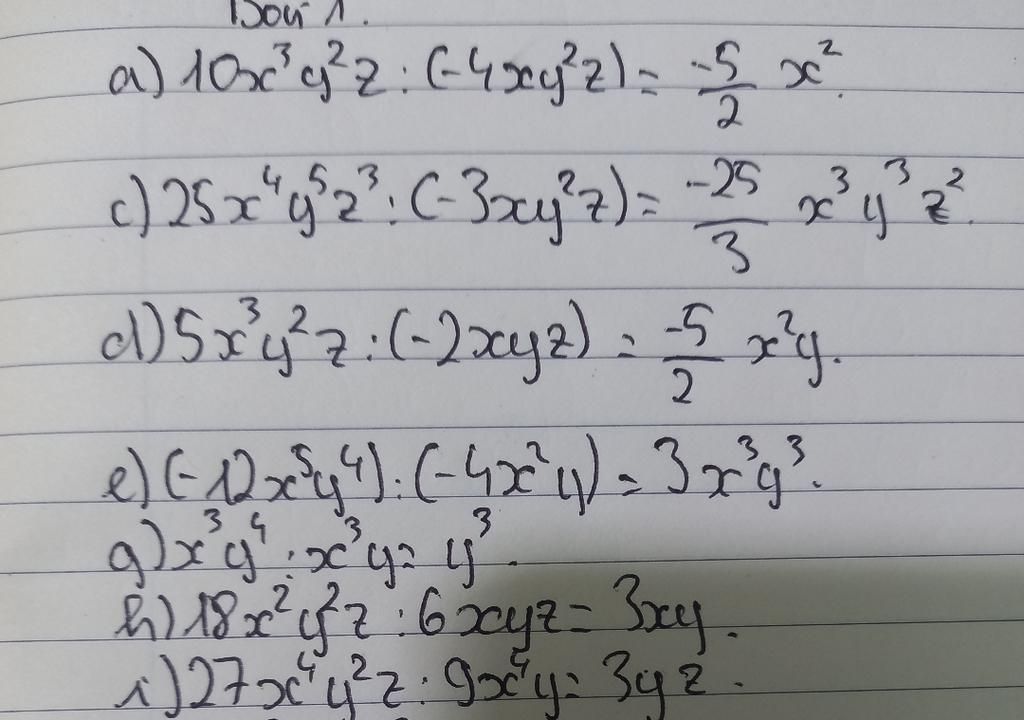 Bài 1.
a) 10x³y²z : (-4xy²z) = -5/2 x².
c) 25x⁴y⁵z³ : (-3xy²z) = -25/3 x³y³z².
d) 5x³y²z : (-2xyz) = -5/2 x²y.
e) (-12x⁵y⁴) : (-4x²y) = 3x³y³.
g) x³y⁴ : x³y = y³.
h) 18x²y²z : 6xyz = 3xy.
i) 27x⁴y²z : 9x⁴y = 3yz.